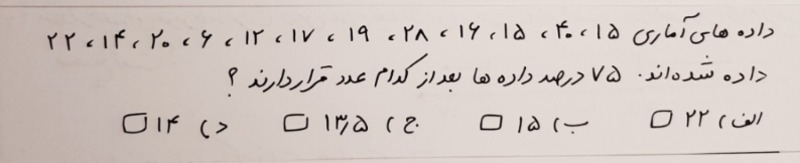 داده های آماری ۱۵ ، ۴۰ ، ۱۵ ، ۱۶ ، ۲۸ ، ۱۹ ، ۱۷ ، ۱۲ ، ۶ ، ۲۰ ، ۱۴ ، ۲۲
داده شده‌اند. ۷۵ درصد داده ها بعد از کدام عدد قرار دارند ؟
الف) ۲۲ □ ب) ۱۵ □ ج) ۱۳٫۵ □ د) ۱۴ □